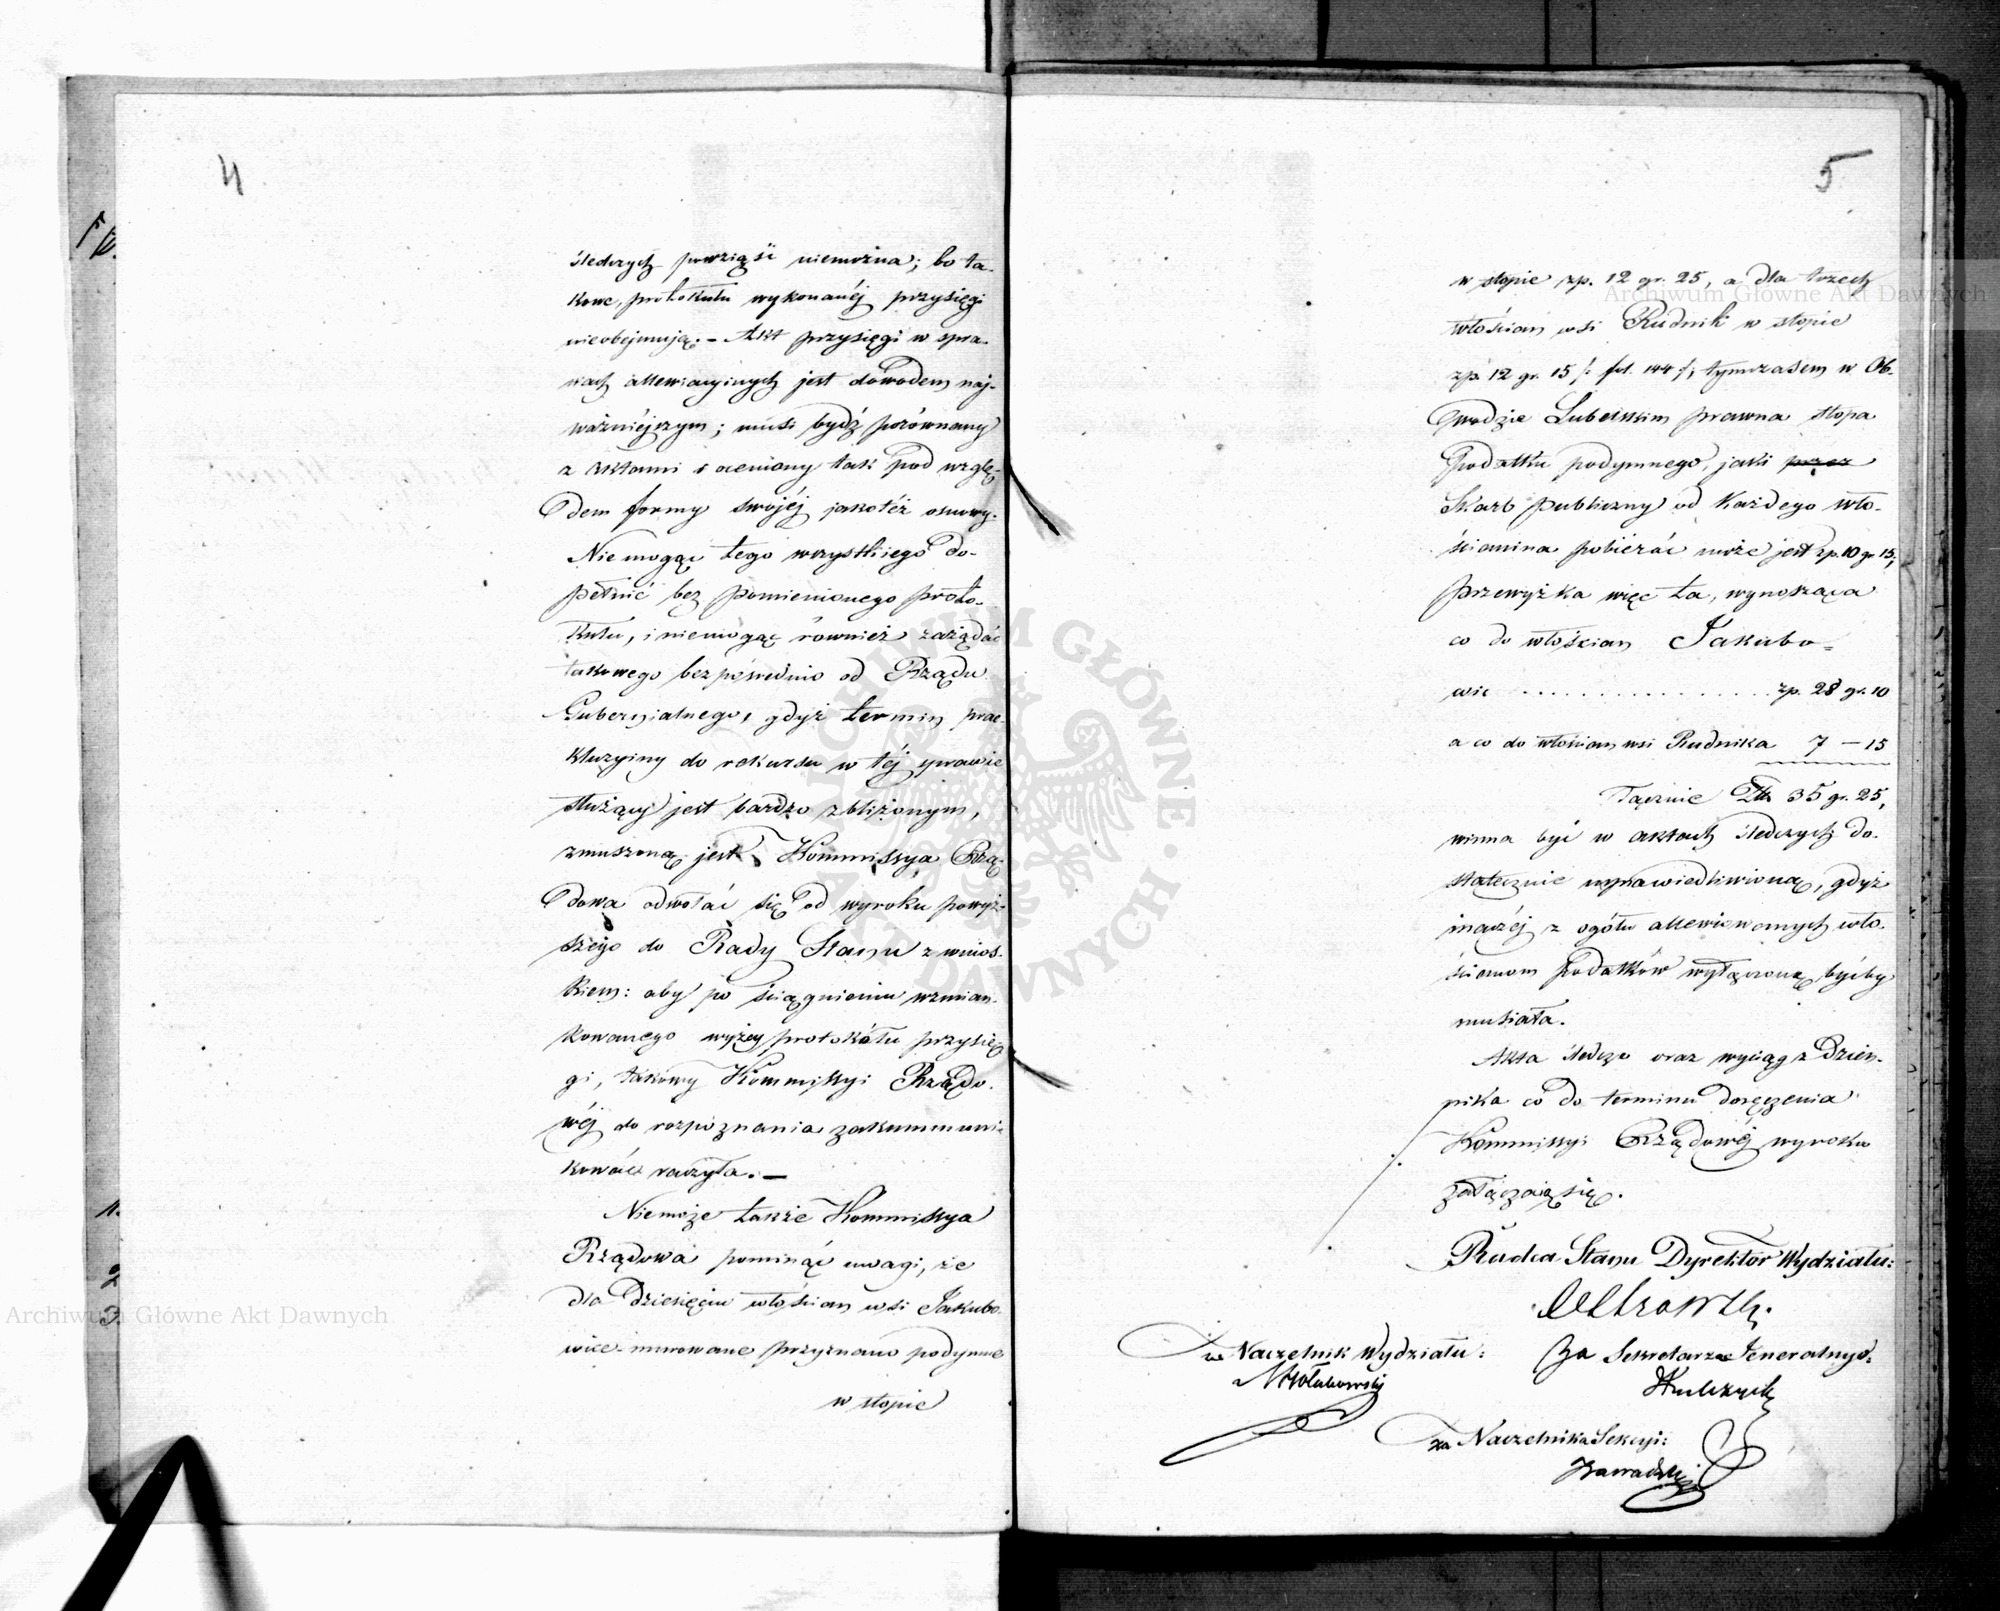 4
śledczych powziąść niemożna; bo ta-
kowe, protokułu wykonanéj przysięgi
nieobejmują. – Akt przysięgi w spra-
wach allewiacyinych jest dowodem naj-
ważniéjszym; musi bydź porównany
z aktami i oceniony tak pod wzglę-
dem formy swojéj jakotéż osnowy.
Niemogąc tego wszystkiego do-
pełnić bez pomienionego proto-
kułu, i niemogąc również zażądać
takowego bezpośrednio od Rządu
Gubernialnego, gdyż termin prae-
kluzyiny do rekursu w téj sprawie
służący jest bardzo zbliżonym,
zmuszoną jest Kommissya Rzą-
dowa odwołać się od wyroku powyż-
szego do Rady Stanu z wnios-
kiem: aby po ściągnieniu wzmian-
kowanego wyżey protokółu przysię-
gi, takowy Kommissyi Rządo-
wéj do rozpoznania zakommuni-
kować raczyła. –
Niemoże także Kommissya
Rządowa pominąć uwagi, że
dla dziesięciu włościan wsi Jakubo-
wice murowane przyznano podymne
w stopie
5
w stopie zp. 12 gr. 25, a dla trzech
włościan wsi Rudnik w stopie
zp. 12 gr. 15 /: fol. 144 :/, tymczasem w Ob-
wodzie Lubelskim prawna stopa
podatku podymnego, jaki przez
Skarb publiczny od każdego wło-
ścianina pobierać może jest zp. 10 gr. 15,
przewyżka więc ta, wynosząca
co do włościan Jakubo-
wic . . . . . . . . . . . . . . . zp. 28 gr. 10
a co do włościan wsi Rudnika 7 – 15
Łącznie Złł. 35 gr. 25,
winna być w aktach śledczych do-
statecznie usprawiedliwioną, gdyż
inaczéj z ogółu allewiowanych wło-
ścianom podatków wyłączoną byćby
musiała.
Akta śledcze oraz wyciąg z Dzien-
nika co do terminu doręczenia
Kommissyi Rządowéj wyroku
załączaią się.
Radca Stanu Dyrektor Wydziału:
za Naczelnik Wydziału:
Za Sekretarza Jeneralnego:
Kulczycki
za Naczelnika Sekcyi:
Zawadzki
Archiwum Główne Akt Dawnych
Archiwum Główne Akt Dawnych
ARCHIWUM GŁÓWNE AKT DAWNYCH